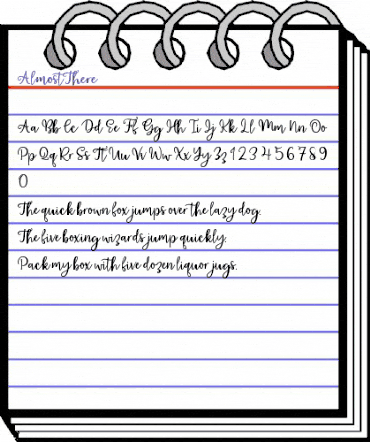 AlmostThere
Aa Bb Cc Dd Ee Ff Gg Hh Ii Jj Kk Ll Mm Nn Oo
Pp Qq Rr Ss Tt Uu Vv Ww Xx Yy Zz 1 2 3 4 5 6 7 8 9
0
The quick brown fox jumps over the lazy dog.
The five boxing wizards jump quickly.
Pack my box with five dozen liquor jugs.